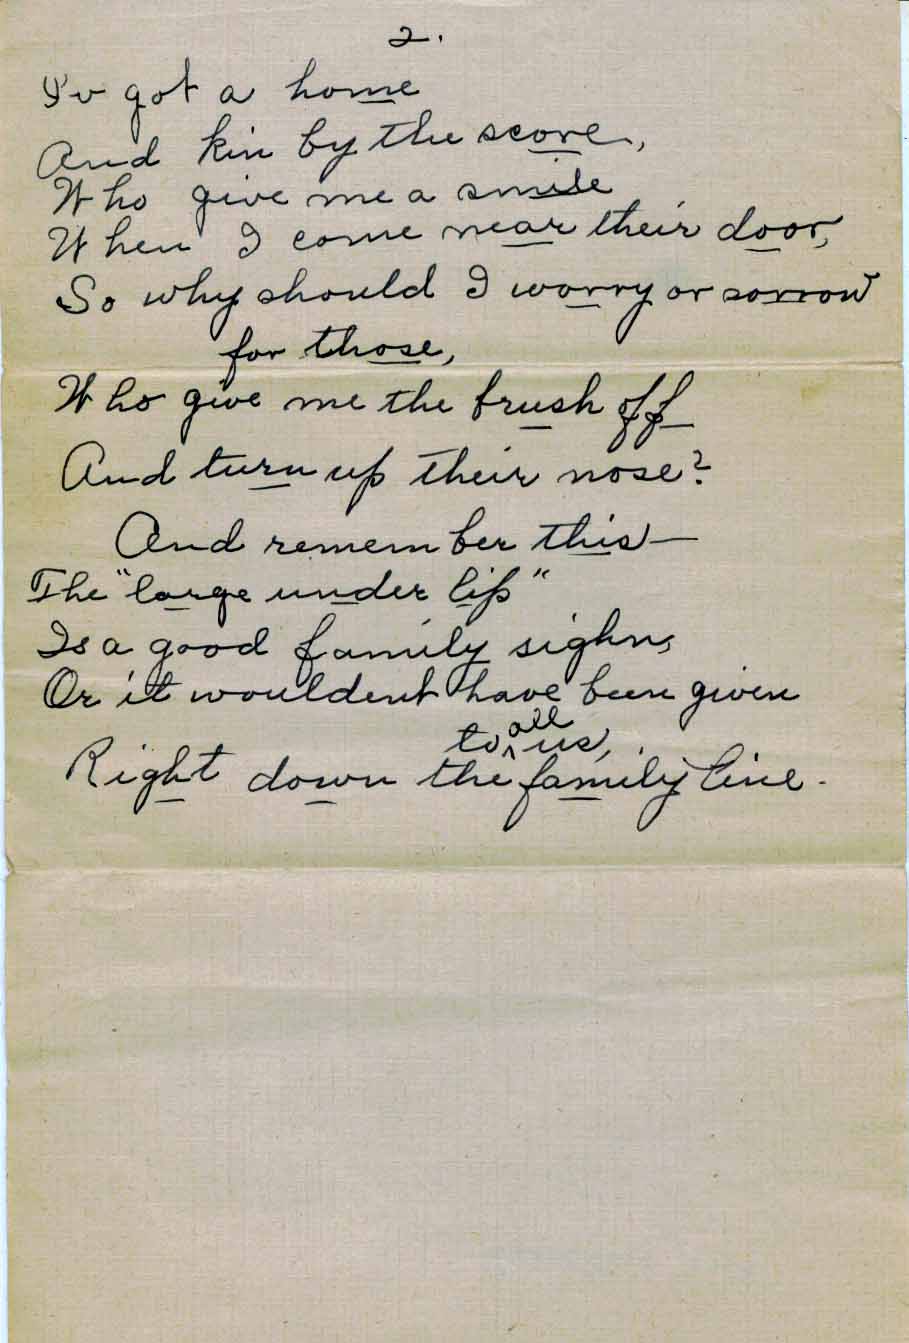 2.
I'v got a home
And kin by the score,
Who give me a smile
When I come near their door,
So why should I worry or sorrow
for those,
Who give me the brush off
And turn up their nose?
And remember this—
The "large under lip"
Is a good family sighn,
Or it wouldent have been given
to all us,
Right down the family line.